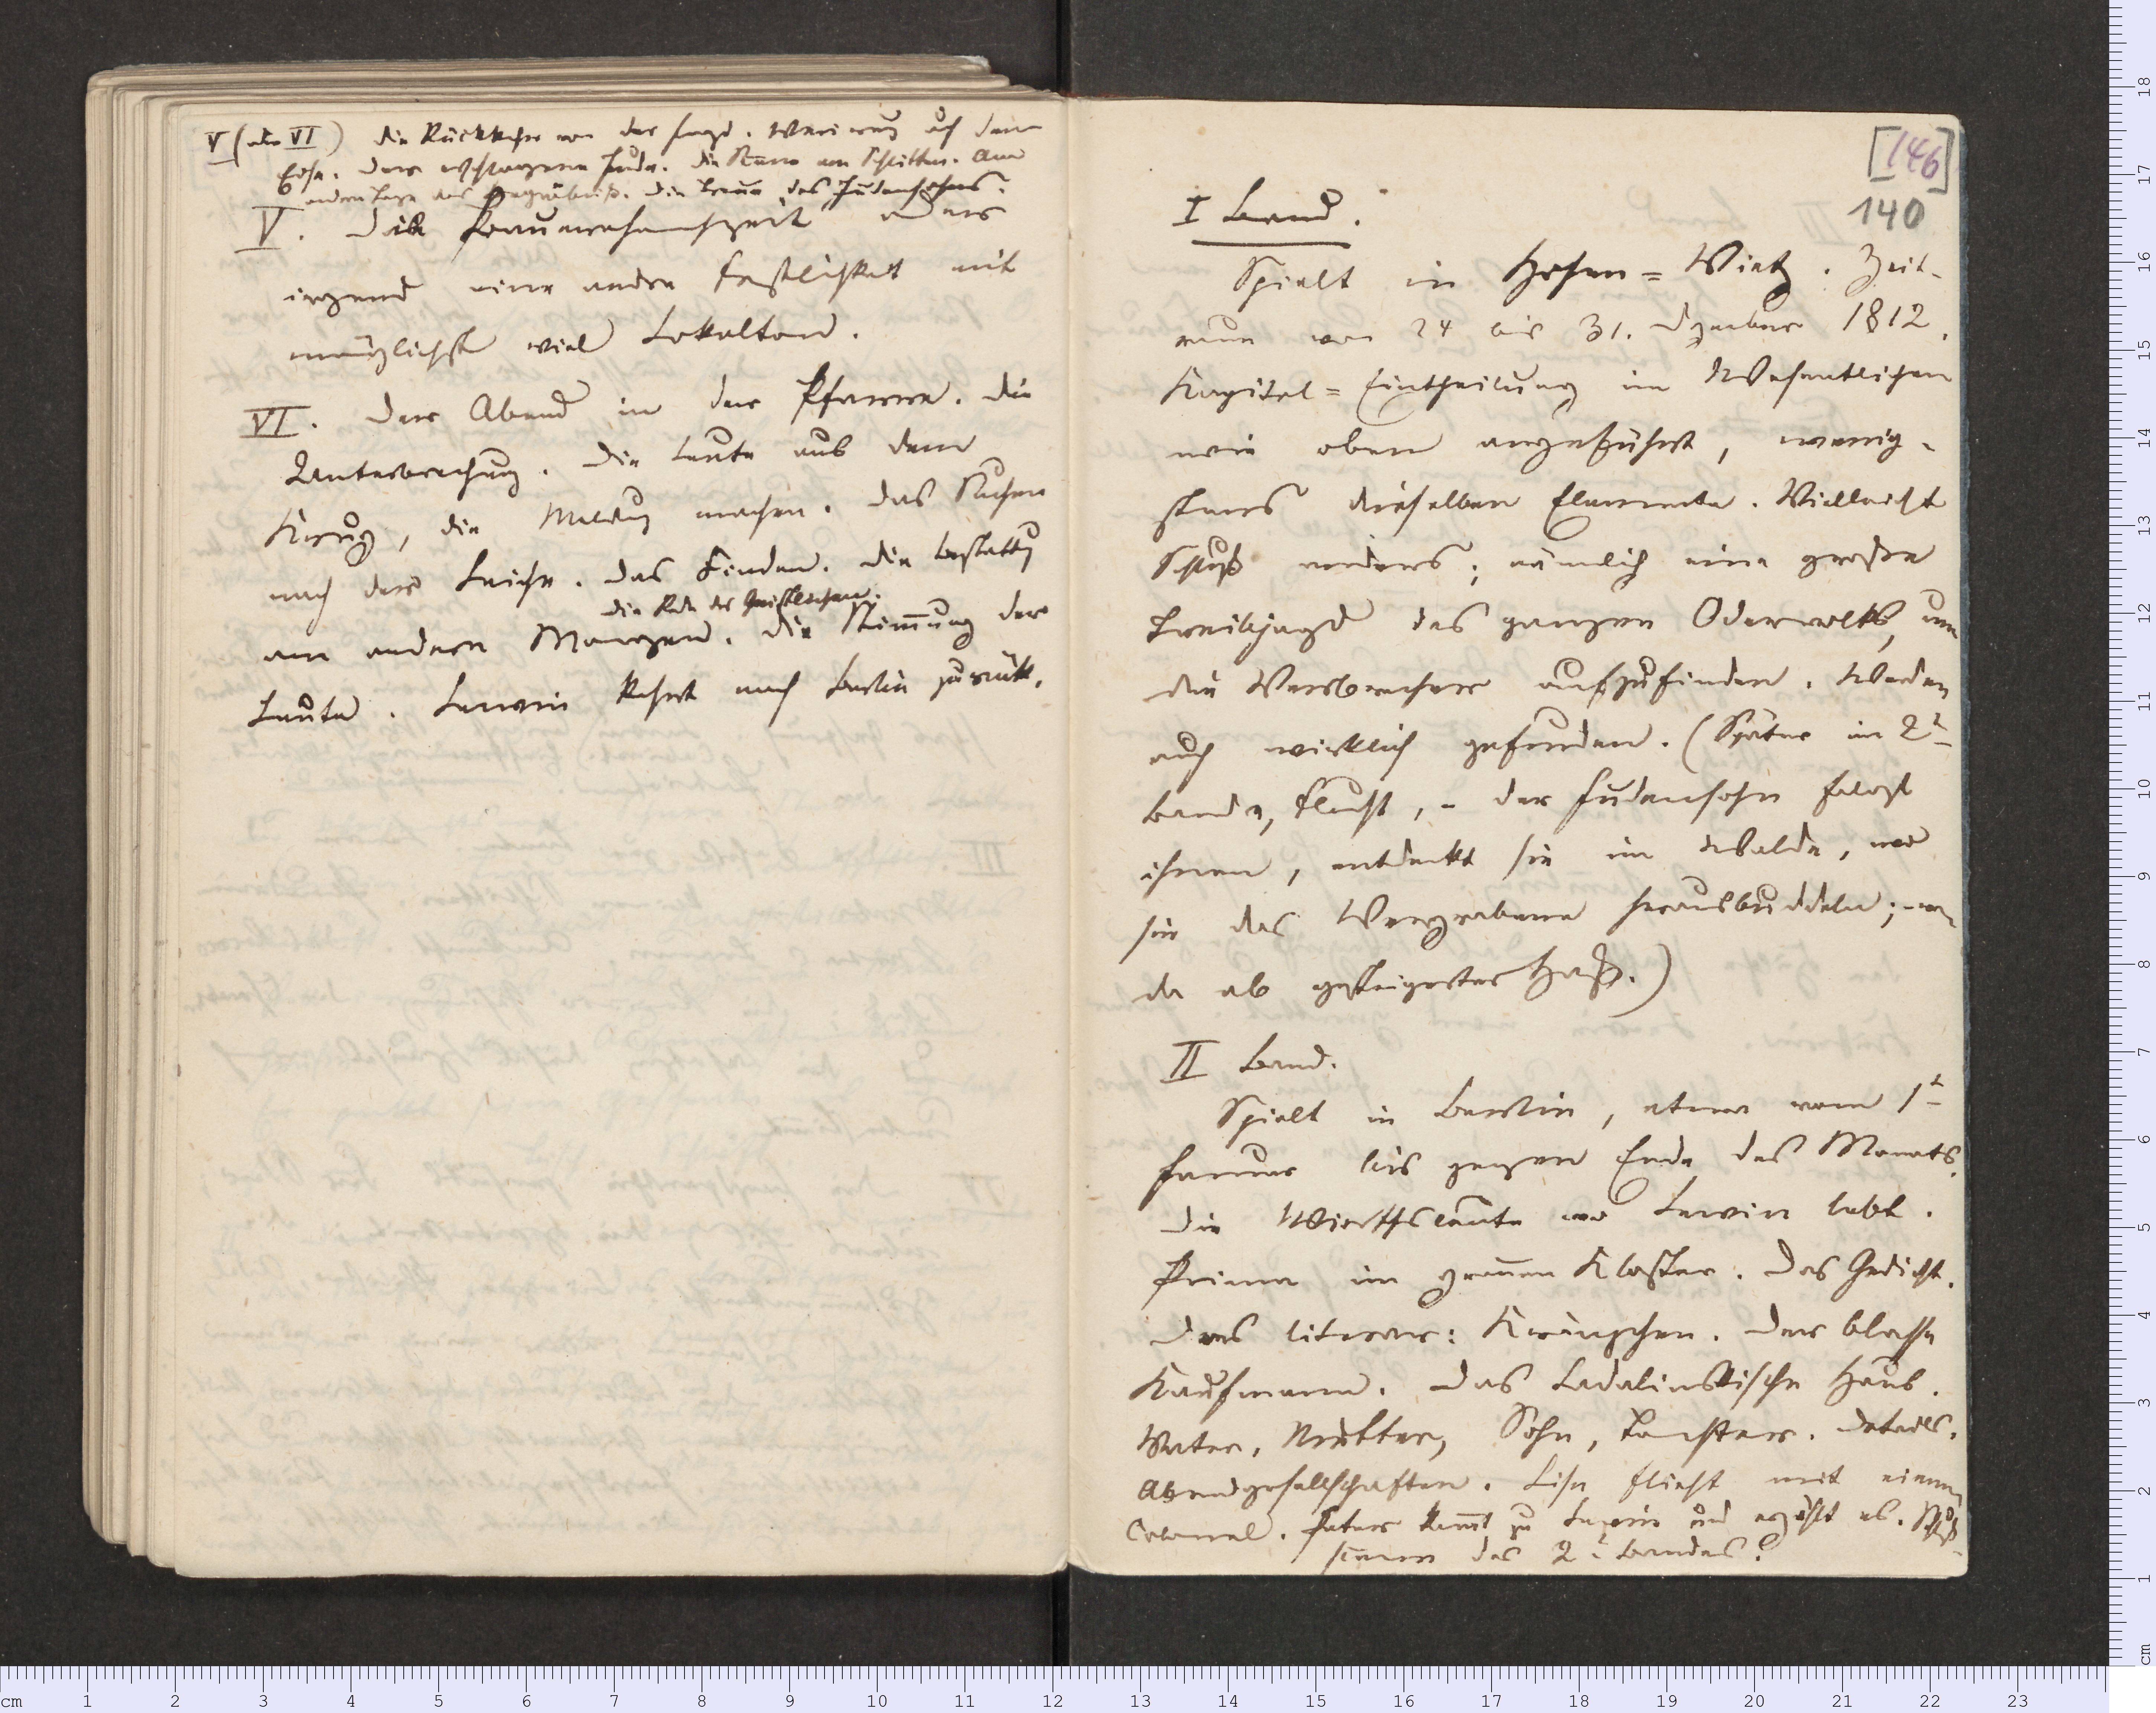 V (oder VI) Die Rückkehr von der Jagd. Warnung auf dem
Eise. Der erschlagene Jude. Die Scene am Schlitten. Am
andern Tage das Begräbniß. Die Trauer des Judensohns.
V. Die Frauenrahmszeit oder
irgend eine andre Festlichkeit mit
möglichst viel Lokalton.
VI. Der Abend in der Pfarre. Die
Unterbrechung. Die Leute aus dem
Krug, die Meldung machen. Das Suchen
nach der Leiche. Das Finden. Die Bestattung
die Rede des Geistlichen.
am andern Morgen. Die Stimmung der
Leute. Lewin kehrt nach Berlin zurück.
[146]
140
I Band.
Spielt in Hohen-Vietz. Zeit-
raum vom 24 bis 31. Dezember 1812.
Kapitel-Eintheilung im Wesentlichen
wie oben angeführt, wenig-
stens dieselben Elemente. Vielleicht
Schluß anders; nämlich eine große
Treibjagd des ganzen Odervolks, um
die Verbrecher aufzufinden. Werden
auch wirklich gefunden. (Später im 2t
Bande, Flucht, – der Judensohn folgt
ihnen, entdeckt sie im Walde, wo
sie das Vergrabene herausbuddeln; von
da ab gesteigerter Haß.)
II Band.
Spielt in Berlin, etwa vom 1t
Januar bis gegen Ende des Monats.
Die Wirthsleute wo Lewin lebt.
Prima im grauen Kloster. Das Gedicht.
Das literar: Kränzchen. Der blasse
Kaufmann. Das Ladalinskische Haus.
Vater, Mutter, Sohn, Tochter. Details.
Abendgesellschaften. Lise flieht mit einem
Colonel. Vater kommt zu Lewin und erzählt es. Schluß-
scene des 2t Bandes.